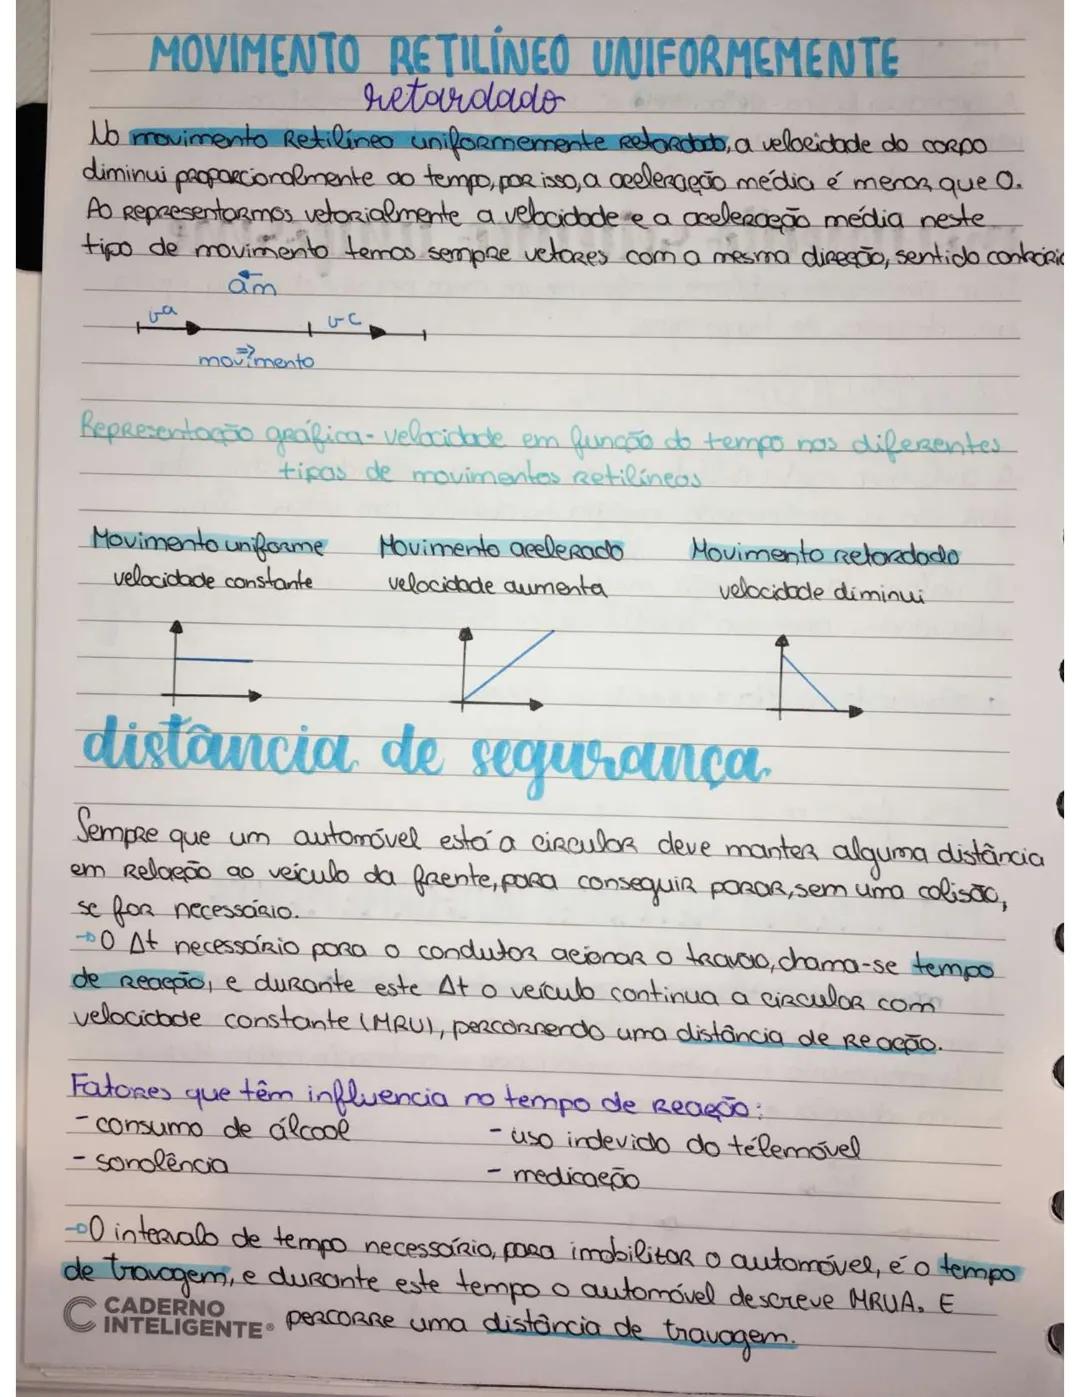 MOVIMENTO RETILÍNEO UNIFORMEMENTE
retardado
No movimento Retilíneo uniformemente Retardado, a velocidade do corpo
diminui proporcionalmente ao tempo, por isso, a aceleração média é menor que 0.
Ao Representarmos vetorialmente a velocidade e a aceleração média neste
tipo de movimento temos sempre vetores com a mesma direção, sentido contrário
am
va
vc
movimento
Representação gráfica - velocidade em função do tempo nos diferentes
tipos de movimentos retilíneos
Movimento uniforme Movimento acelerado Movimento retardado
velocidade constante velocidade aumenta velocidade diminui
distância de segurança
Sempre que um automóvel está a circular deve manter alguma distância
em relação ao veículo da frente, para conseguir parar, sem uma colisão,
se for necessário.
→ O Δt necessário para o condutor acionar o travão, chama-se tempo
de reação, e durante este Δt o veículo continua a circular com
velocidade constante (MRU), percorrendo uma distância de Reação.
Fatores que têm influencia no tempo de reação:
- consumo de álcool - uso indevido do télemóvel
- sonolência - medicação
→ O intervalo de tempo necessário, para imobilitar o automóvel, é o tempo
de travagem, e durante este tempo o automóvel descreve MRUA. E
CADERNO
INTELIGENTE® percorre uma distância de travagem.